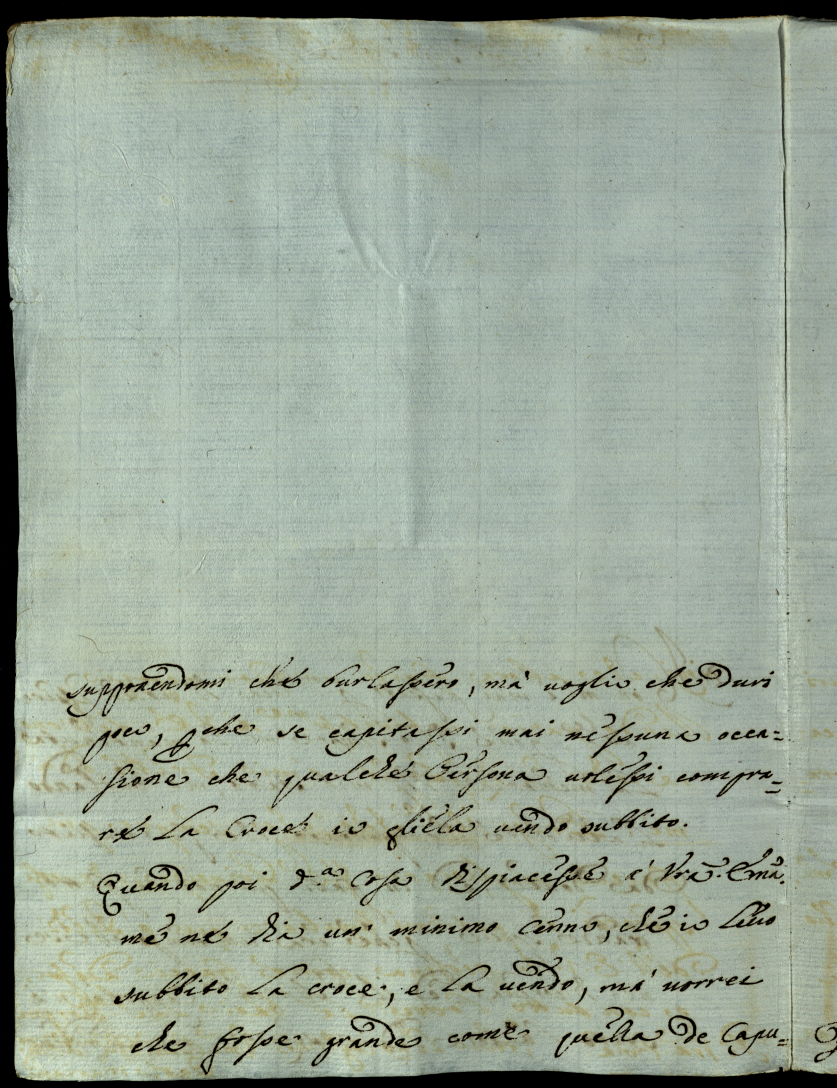 supponendomi che burlassero, ma' voglio che duri
poco, pche se capitassi mai nessuna occa=
sione che qualche Persona volessi compra=
re La Croce io gliela vendo subbito.
Quando poi d.ª Cosa dispiacesse à Vrã. Emã.
me ne dia un' minimo cenno, che io Levo
subbito La croce, e La vendo, ma' vorrei
che fosse grande come quella de Capu=